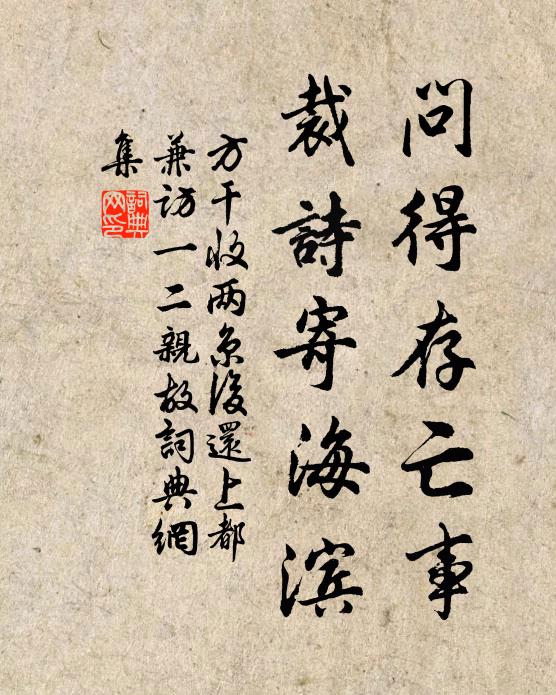 問得存亡事
裁詩寄海滨
方干收两京後還上都
兼访一二親故詞典網
集
詞典
网印